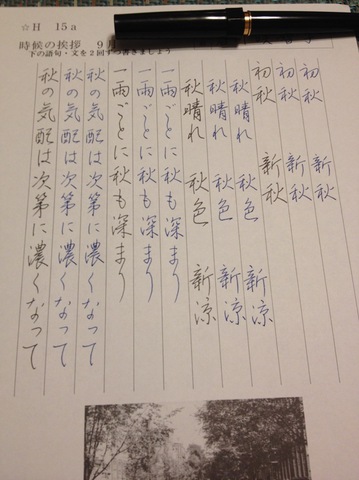 ☆H 15a
時候の挨拶 9月
下の語句・文を2回ずつ書きましょう
初秋 新秋
初秋 新秋
初秋 新秋
秋晴れ 秋色 新涼
秋晴れ 秋色 新涼
秋晴れ 秋色 新涼
一雨ごとに秋も深まり
一雨ごとに秋も深まり
一雨ごとに秋も深まり
秋の気配は次第に濃くなって
秋の気配は次第に濃くなって
秋の気配は次第に濃くなって